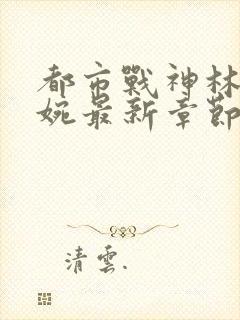 都市戰神林
婉最新章節
清雲.